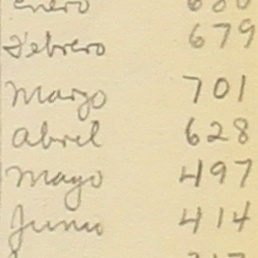 enero
Febrero 679
Marzo 701
Abril 628
Mayo 497
Junio 414